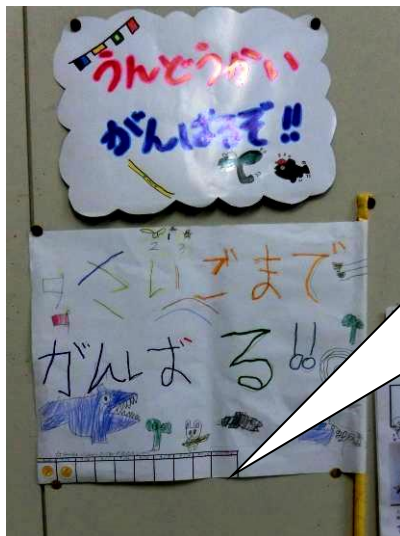 うんどうかい
がんばるぞ!!
さいごまで
がんばる!!